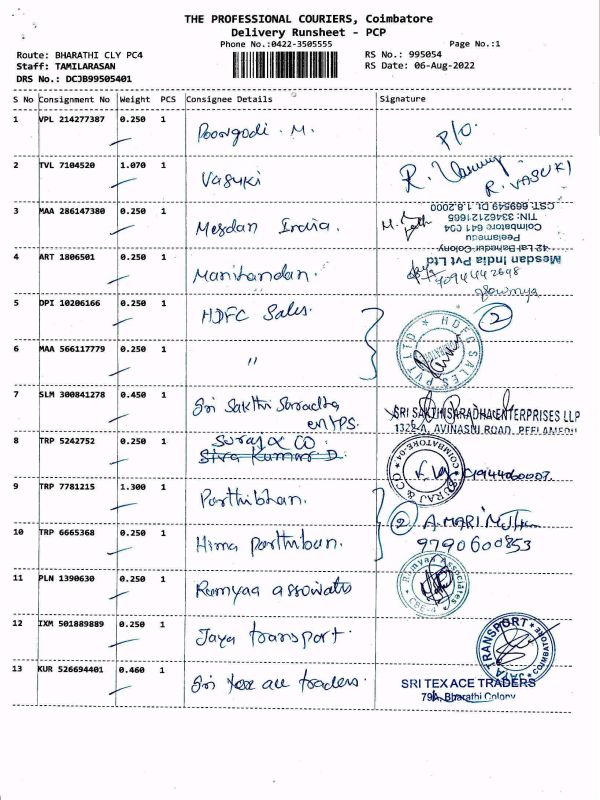 THE PROFESSIONAL COURIERS, Coimbatore
Delivery Runsheet - PCP
Phone No.:0422-3505555
Page No.:1
Route: BHARATHI CLY PC4
Staff: TAMILARASAN
DRS No.: DCJB99505401
RS No.: 995054
RS Date: 06-Aug-2022
S No Consignment No Weight PCS Consignee Details Signature
1 VPL 214277387 0.250 1 Poongodi . M. P/O.
2 TVL 7104520 1.070 1 Vasuki
R. VASUKI
3 MAA 286147380 0.250 1 Mesdan India.
CST: 669549 Dt. 1.8.2000
TIN: 3346212 1665
Coimbatore 641 004
Peelamedu
42 Lal Bahadur Colony
Mesdan India Pvt Ltd
4 ART 1806501 0.250 1 Manikandan.
7094442648
Sowmya
5 DPI 10206166 0.250 1 HDFC Sales.
2
HDFC SALES PVT LTD
6 MAA 566117779 0.250 1 "
7 SLM 300841278 0.450 1 Sri Sakthi Saradha
entps.
SRI SAKTHISARADHA ENTERPRISES LLP
1322-A, AVINASHI ROAD, PEELAMEDU
8 TRP 5242752 0.250 1 Suraj & CO
Siva Kumar D.
SURAJ & CO COIMBATORE-04
9 TRP 7781215 1.300 1 Parthibhan.
2 A. MARI Muthu
9790600853
10 TRP 6665368 0.250 1 Hima Parthiban.
11 PLN 1390630 0.250 1 Ramyaa associates
Ramyaa Associates
CBE-4
12 IXM 501889889 0.250 1 Jaya transport.
JAYA TRANSPORT COIMBATORE
13 KUR 526694401 0.460 1 Sri tex ace traders.
SRI TEX ACE TRADERS
79A, Bharathi Colony